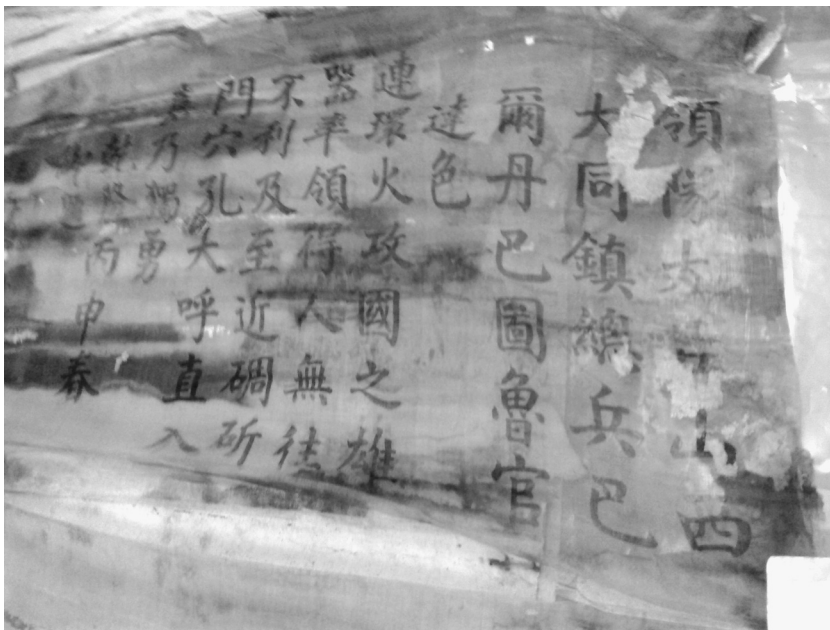 領隊大山西
大同鎮總兵巴
爾丹巴圖魯官
達色
連環火攻國之雄
器率領得人無往
不利及至近碉斫
門穴孔大呼直入
真乃勇
乾隆丙申春
御題